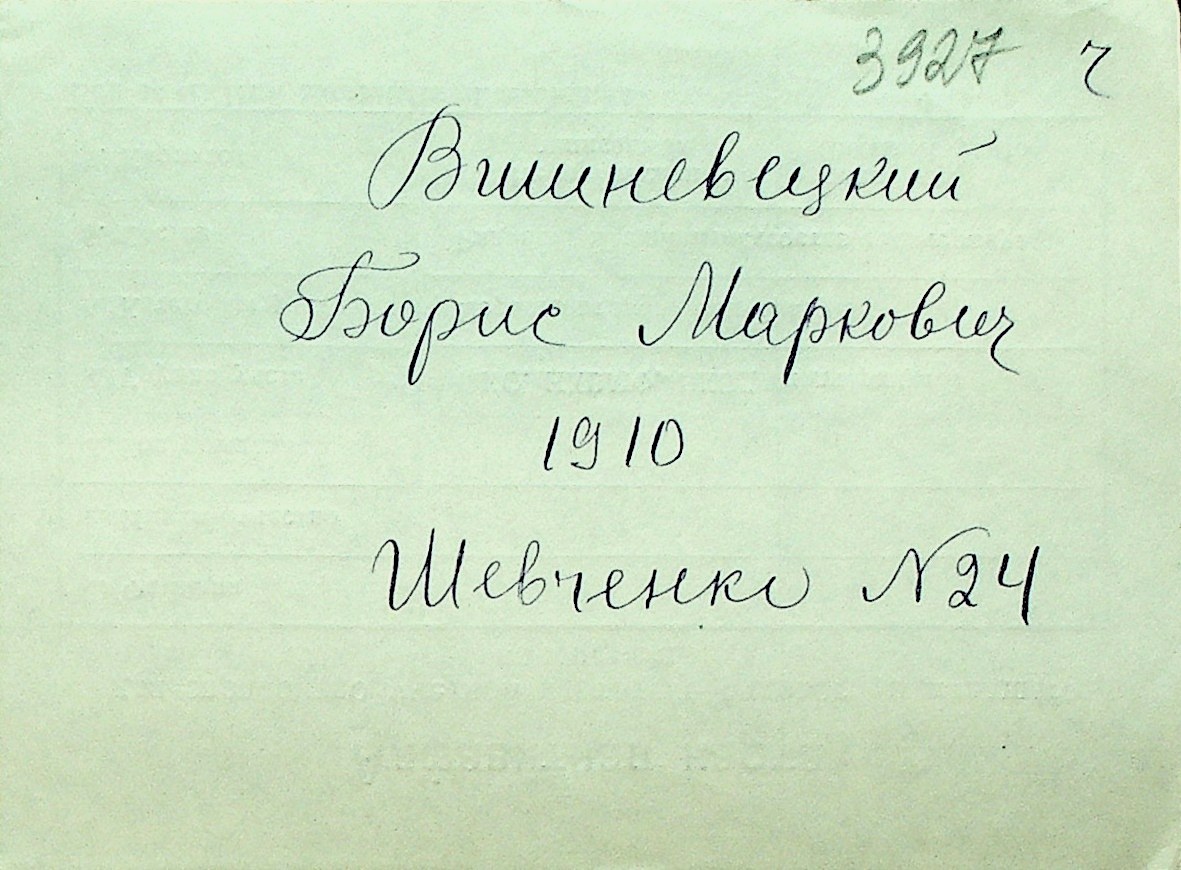 3927 ч
Вишневецкий
Борис Маркович
1910
Шевченко №24